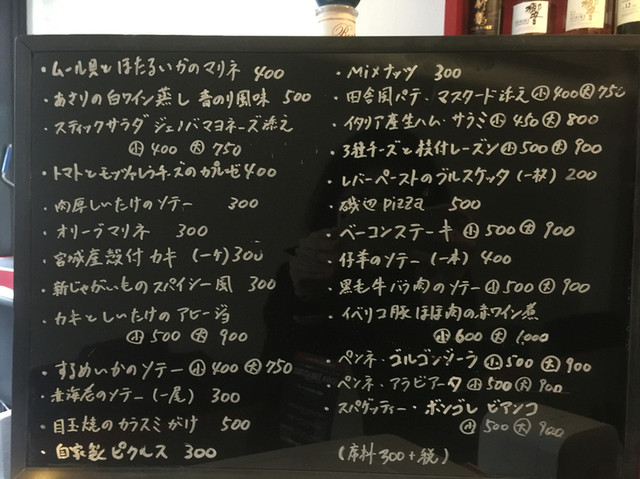 ・ムール貝とほたるいかのマリネ 400
・あさりの白ワイン蒸し 青のり風味 500
・スティックサラダ ジェノバマヨネーズ添え
小 400 大 750
・トマトとモッツァレラチーズのカプレーゼ 400
・肉厚しいたけのソテー 300
・オリーブマリネ 300
・宮城産殻付カキ (一ケ) 300
・新じゃがいものスパイシー風 300
・カキとしいたけのアヒージョ
小 500 大 900
・するめいかのソテー 小 400 大 750
・赤海老のソテー (一尾) 300
・目玉焼のカラスミがけ 500
・自家製ピクルス 300
・Mixナッツ 300
・田舎風パテ・マスタード添え 小 400 大 750
・イタリア産生ハム・サラミ 小 450 大 800
・3種チーズと枝付レーズン 小 500 大 900
・レバーペーストのブルスケッタ (一枚) 200
・磯辺pizza 500
・ベーコンステーキ 小 500 大 900
・仔羊のソテー (一本) 400
・黒毛牛ハツ肉のソテー 小 500 大 900
・イベリコ豚ほほ肉の赤ワイン煮
小 600 大 1,000
・ペンネ・ゴルゴンゾーラ 小 500 大 900
・ペンネ・アラビアータ 小 500 大 900
・スパゲッティー・ボンゴレ ビアンコ
小 500 大 900
(席料 300+税)